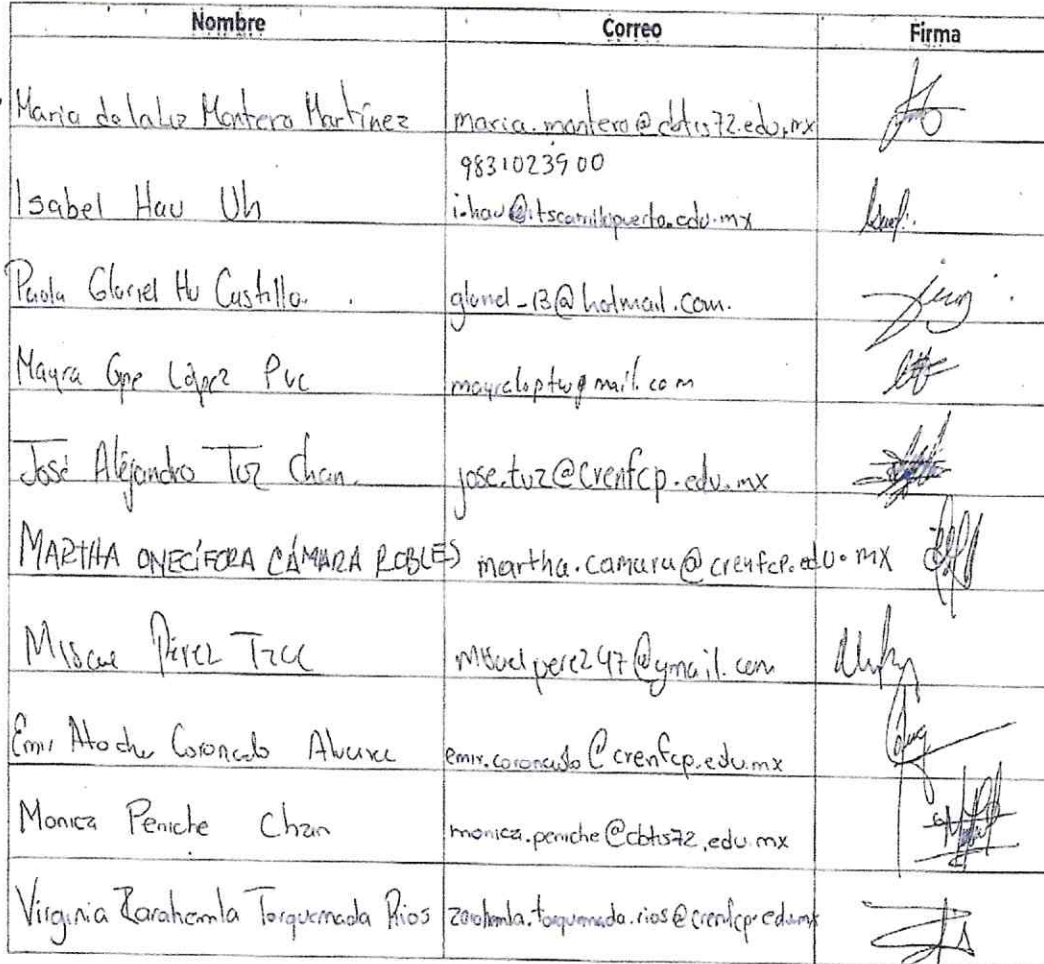 Nombre Correo Firma
Maria de la Luz Montero Martínez maria.montero@cbtis72.edu.mx
9831023900
Isabel Hau Uh i.hau@itscarrillopuerto.edu.mx
Paola Gloriel Hu Castillo. gloriel_13@hotmail.com.
Mayra Gpe López Puc
José Alejandro Tuz Chan. jose.tuz@crenfcp.edu.mx
MARTHA ONECÍFORA CÁMARA ROBLES martha.camara@crenfcp.edu.mx
Pérez
Emir Coronado emir.coronado@crenfcp.edu.mx
Monica Peniche Chan monica.peniche@cbtis72.edu.mx
Virginia Zarahemla Torquemada Rios zarahemla.torquemada.rios@crenfcp.edu.mx